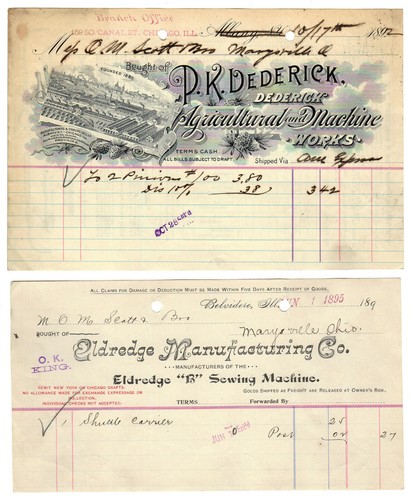 Branch Office
159 SO. CANAL ST. CHICAGO, ILL.
Albany, N.Y. 10/17th 1892
O. M. Scott & Bro Marysville O
Bought of
FOUNDED 1840
P.K. DEDERICK.
DEDERICK
Agricultural and Machine
WORKS
TERMS CASH.
ALL BILLS SUBJECT TO DRAFT.
Shipped Via Am Express
To 2 Pinions #100 3.80
Dis 10% 38 342
ALL CLAIMS FOR DAMAGE OR DEDUCTION MUST BE MADE WITHIN FIVE DAYS AFTER RECEIPT OF GOODS.
Belvidere, Ill. JUN 1 1895 189
M O. M. Scott & Bro
Marysville Ohio.
BOUGHT OF
Eldredge Manufacturing Co.
O. K.
KING.
MANUFACTURERS OF THE
Eldredge "B" Sewing Machine.
REMIT NEW YORK OR CHICAGO DRAFTS.
NO ALLOWANCE MADE FOR EXCHANGE EXPRESSAGE OR
COLLECTION.
INDIVIDUAL CHECKS NOT ACCEPTED.
GOODS SHIPPED AS FREIGHT AND RELEASED AT OWNER'S RISK.
TERMS
Forwarded By
1 Shuttle Carrier 25
Post 02 27